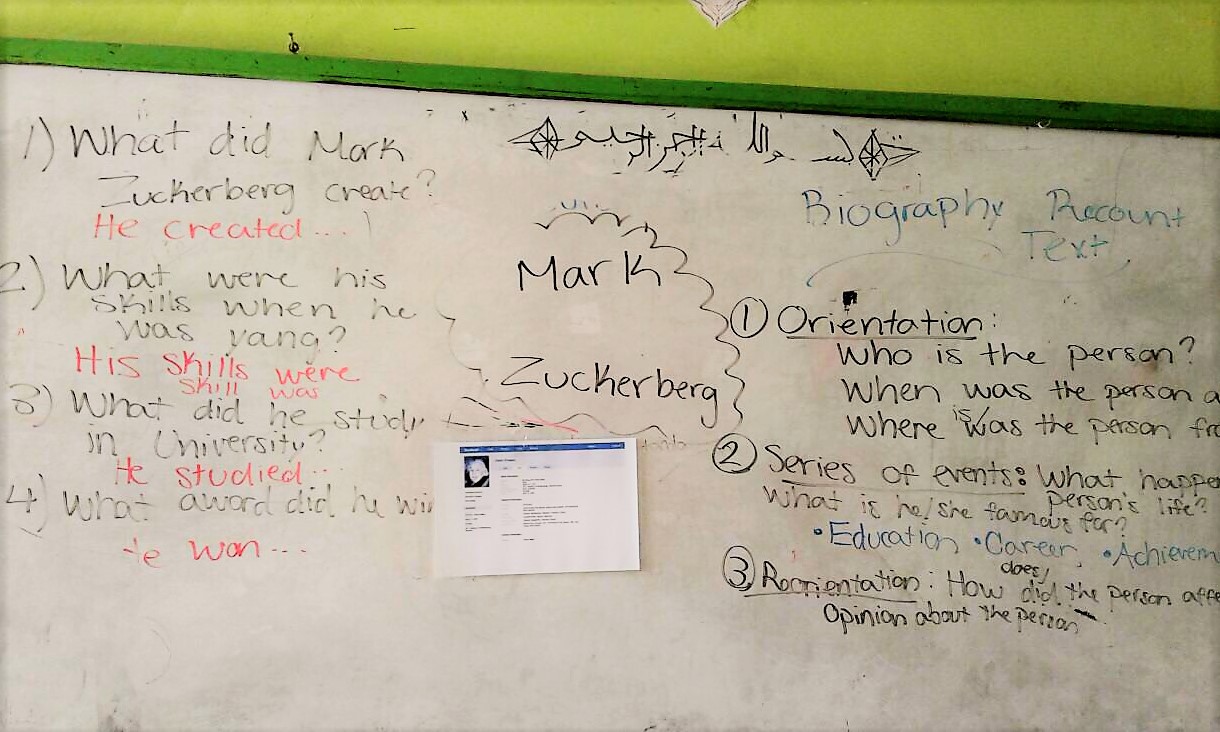 1) What did Mark
Zuckerberg create?
He created...
2) What were his
skills when he
was yang?
His skills were
skill was
3) What did he study
in University?
He studied..
4) What award did he win
He won...
Mark
Zuckerberg
Biography Recount
Text
① Orientation:
Who is the person?
When was the person
Where is/was the person
② Series of events: What happe
person's life?
What is he/she famous for?
•Education •Career, •Achievem
③ Reorientation: How does/did the person affe
Opinion about the person